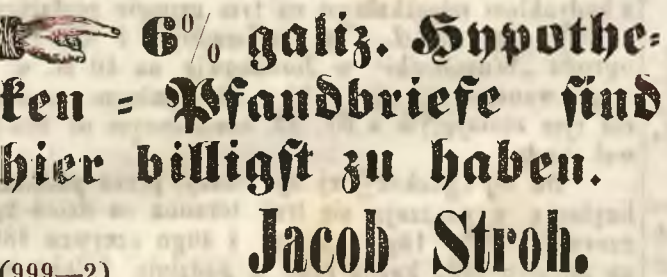 6% galiz. Hypothe=
ken = Pfandbriefe sind
hier billigst zu haben.
Jacob Stroh.
(999—2)